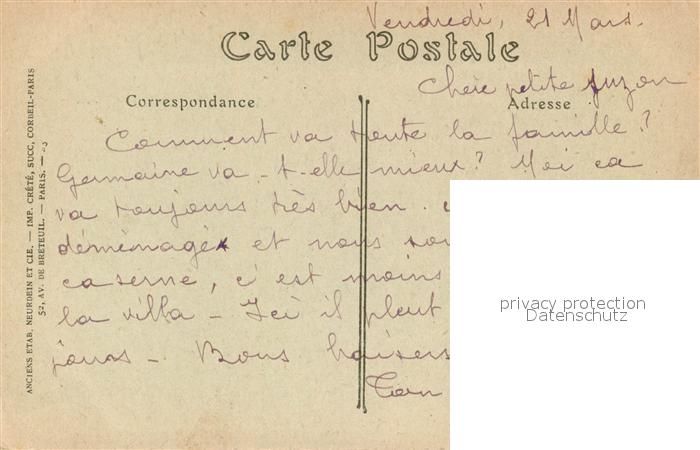 Vendredi, 21 Mars.
Carte Postale
Chere petite Suzon
Correspondance
Adresse
Comment va toute la famille?
Germaine va-t-elle mieux? Moi ca
va toujours très bien.
déménagé et nous
caserne, c'est moins
la villa - Ici il pleut
jours - Bons baisers
Ton
ANCIENS ETAB. NEURDEIN ET CIE. — IMP. CRÉTÉ, SUCC, CORBEIL-PARIS
52, AV. DE BRETEUIL. — PARIS. —
privacy protection
Datenschutz